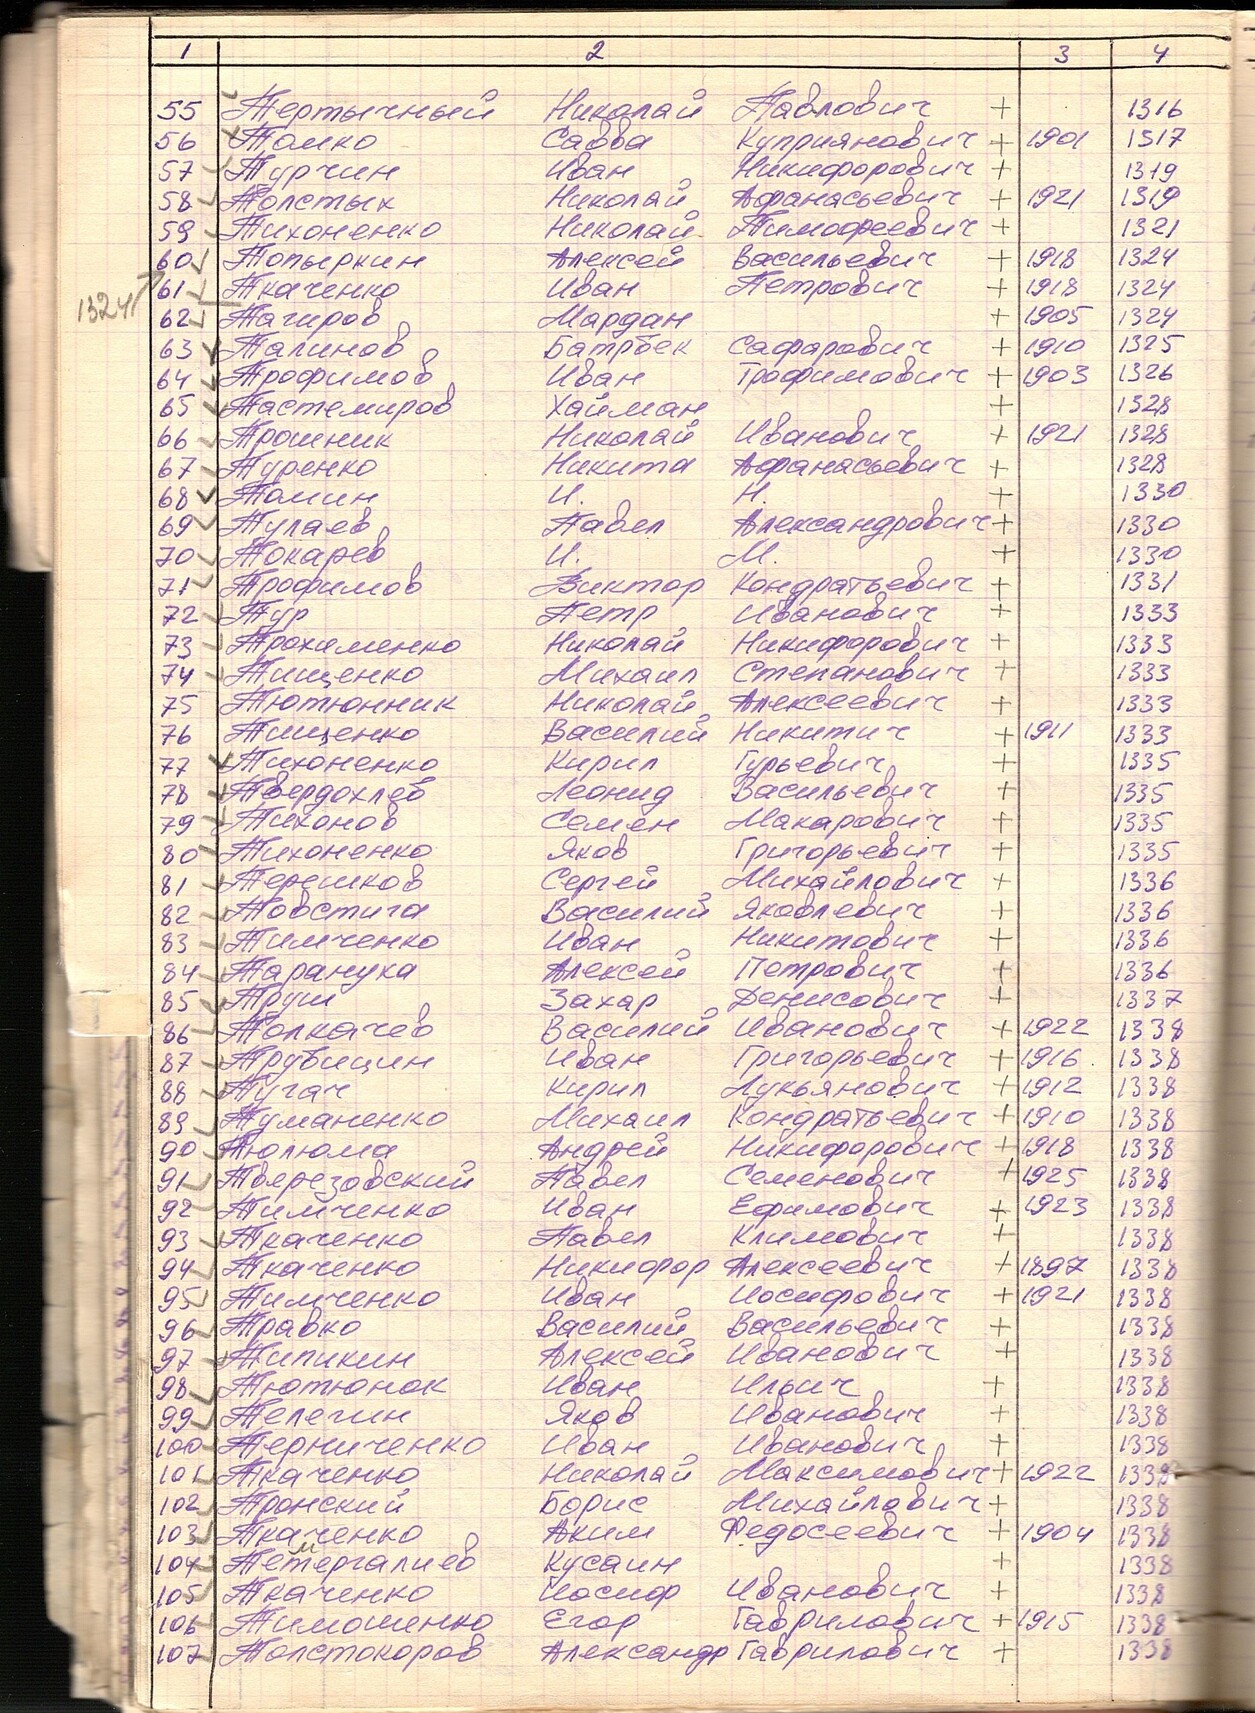 1 2 3 4
55 Тертычный Николай Павлович + 1316
56 Томко Савва Куприянович + 1901 1317
57 Турчин Иван Никифорович + 1319
58 Толстых Николай Афанасьевич + 1921 1319
59 Тихоненко Николай Тимофеевич + 1321
60 Топыркин Алексей Васильевич + 1918 1324
1324
61 Ткаченко Иван Петрович + 1918 1324
62 Тагиров Мардан + 1905 1324
63 Талинов Батрбек Сафарович + 1910 1325
64 Трофимов Иван Трофимович + 1903 1326
65 Тастемиров Хайман + 1328
66 Трошник Николай Иванович + 1921 1328
67 Туренко Никита Афанасьевич + 1328
68 Томин И. Н. + 1330
69 Тулаев Павел Александрович + 1330
70 Токарев И. М. + 1330
71 Трофимов Виктор Кондратьевич + 1331
72 Тур Петр Иванович + 1333
73 Трохименко Николай Никифорович + 1333
74 Тищенко Михаил Степанович + 1333
75 Тютюнник Николай Алексеевич + 1333
76 Тищенко Василий Никитич + 1911 1333
77 Тихоненко Кирил Гурьевич + 1335
78 Твердохлеб Леонид Васильевич + 1335
79 Тихонов Семен Макарович + 1335
80 Тихоненко Яков Григорьевич + 1335
81 Терешков Сергей Михайлович + 1336
82 Товстига Василий Яковлевич + 1336
83 Тимченко Иван Никитович + 1336
84 Таранука Алексей Петрович + 1336
85 Труш Захар Денисович + 1337
86 Толкачев Василий Иванович + 1922 1338
87 Трубицин Иван Григорьевич + 1916 1338
88 Тугач Кирил Лукьянович + 1912 1338
89 Туманенко Михаил Кондратьевич + 1910 1338
90 Тюлюма Андрей Никифорович + 1918 1338
91 Тверезовский Павел Семенович + 1925 1338
92 Тимченко Иван Ефимович + 1923 1338
93 Ткаченко Павел Климович + 1338
94 Ткаченко Никифор Алексеевич + 1897 1338
95 Тимченко Иван Иосифович + 1921 1338
96 Травко Василий Васильевич + 1338
97 Типикин Алексей Иванович + 1338
98 Тютюнок Иван Ильич + 1338
99 Телегин Яков Иванович + 1338
100 Терниченко Иван Иванович + 1338
101 Ткаченко Николай Максимович + 1922 1338
102 Тронский Борис Михайлович + 1338
103 Ткаченко Аким Федосеевич + 1904 1338
104 Тетмергалиев Кусаин + 1338
105 Ткаченко Йосиф Иванович + 1338
106 Тимошенко Егор Гаврилович + 1915 1338
107 Толстокоров Александр Гаврилович + 1338